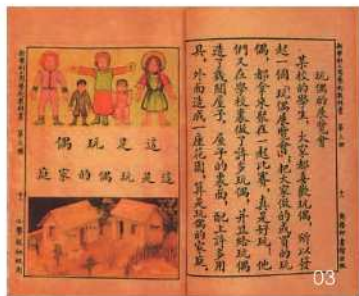 玩偶的展覽會
某校的學生，大家都喜歡玩偶，所以發
起一個玩偶展覽會，把大家做的或買的玩
偶，都拿來聚在一起比賽，真是好玩。他
們又在學校裏做了許多玩偶，并且給玩偶
造了幾間屋子，屋子的裏面，配上許多用
具，外面造成一座花園，算是玩偶的家庭。
這是玩偶
這是玩偶的家庭
03